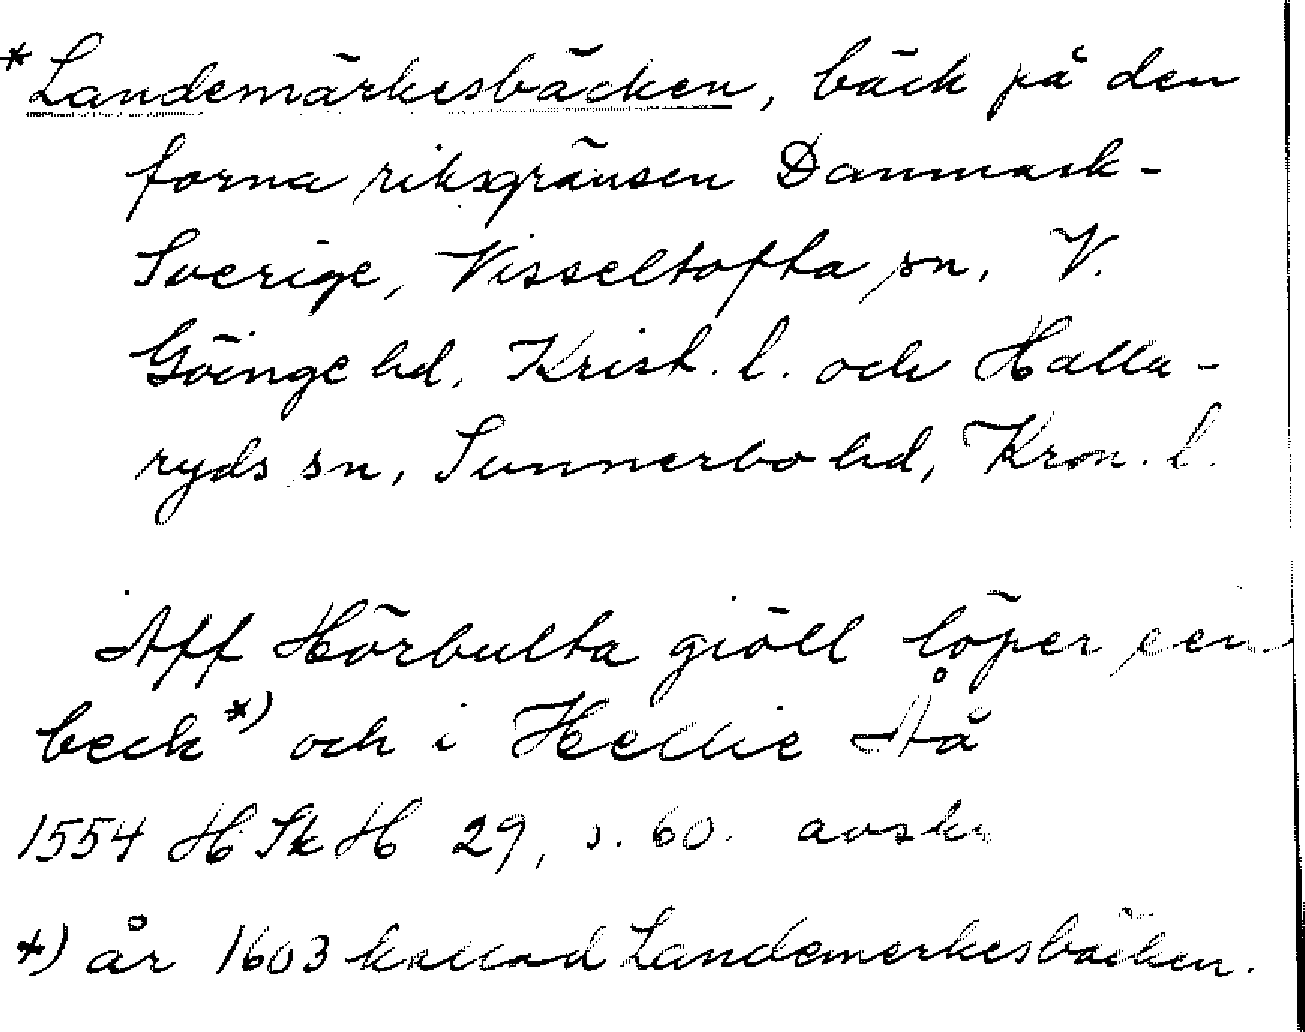 *Landemärkesbäcken, bäck på den
forna riksgränsen Danmark-
Sverige, Visseltofta sn, V.
Göinge hd, Krist. l. och Halla-
ryds sn, Sunnerbo hd, Kron. l.
Aff Hörbulta giöll löper een
beck*) och i Hellie Åå
1554 HSkH 29, s. 60. avskr
*) år 1603 kallad Landemerkesbäcken.